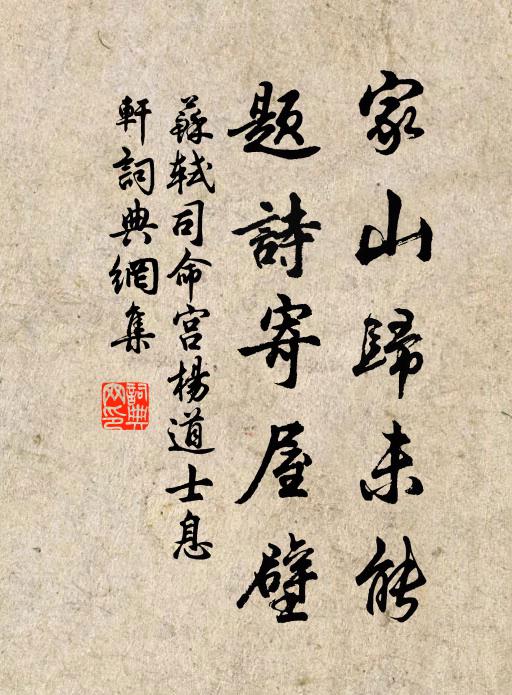 家山歸未能
題詩寄屋壁
蘇軾司命宮楊道士息
軒詞典網集
詞典网印